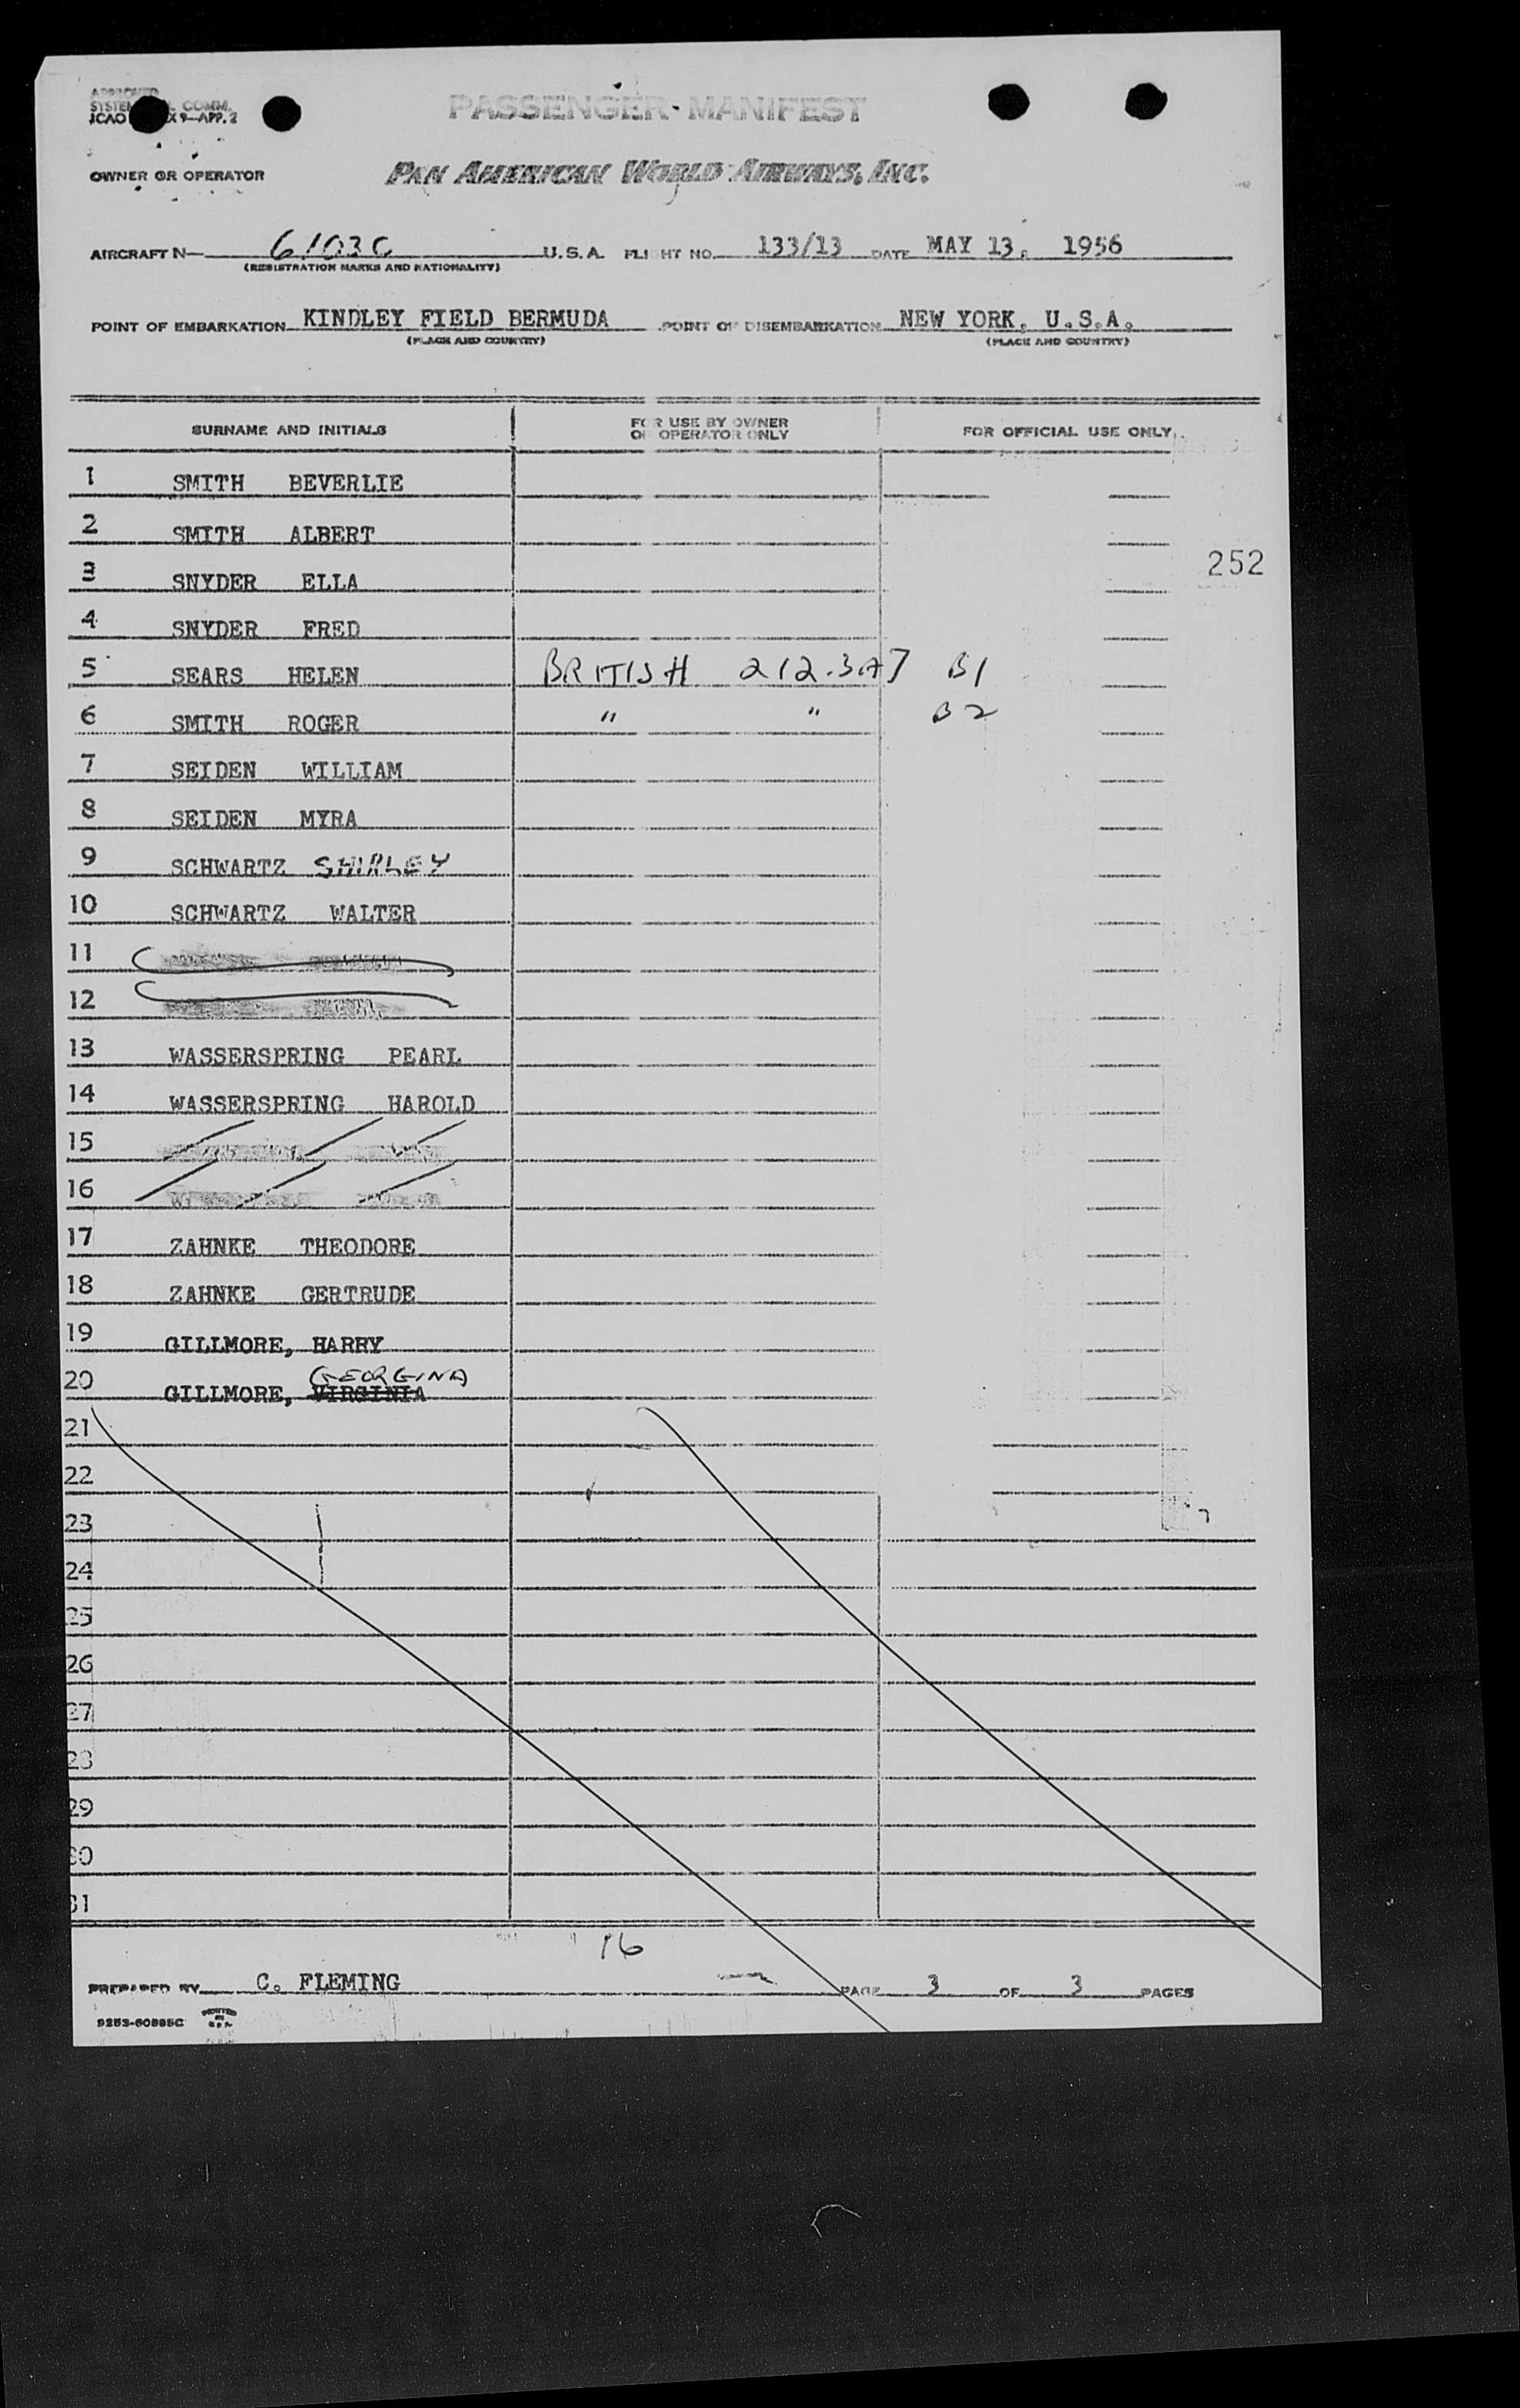 APPROVED
SYSTEM COMM.
ICAO X 9—APP. 2
PASSENGER MANIFEST
OWNER OR OPERATOR PAN AMERICAN WORLD AIRWAYS, INC.
AIRCRAFT N— 6103C U.S.A. FLIGHT NO. 133/13 DATE MAY 13, 1956
(REGISTRATION MARKS AND NATIONALITY)
POINT OF EMBARKATION KINDLEY FIELD BERMUDA POINT OF DISEMBARKATION NEW YORK, U.S.A.
(PLACE AND COUNTRY) (PLACE AND COUNTRY)
SURNAME AND INITIALS FOR USE BY OWNER OR OPERATOR ONLY FOR OFFICIAL USE ONLY
1 SMITH BEVERLIE
2 SMITH ALBERT
252
3 SNYDER ELLA
4 SNYDER FRED
5 SEARS HELEN BRITISH 212.3A7 B1
6 SMITH ROGER " " B2
7 SEIDEN WILLIAM
8 SEIDEN MYRA
9 SCHWARTZ SHIRLEY
10 SCHWARTZ WALTER
11
12
13 WASSERSPRING PEARL
14 WASSERSPRING HAROLD
15
16
17 ZAHNKE THEODORE
18 ZAHNKE GERTRUDE
19 GILLMORE, HARRY
GEORGINA
20 GILLMORE, VIRGINIA
21
22
23
24
25
26
27
28
29
30
31
16
PREPARED BY C. FLEMING PAGE 3 OF 3 PAGES
PRINTED IN U.S.A.